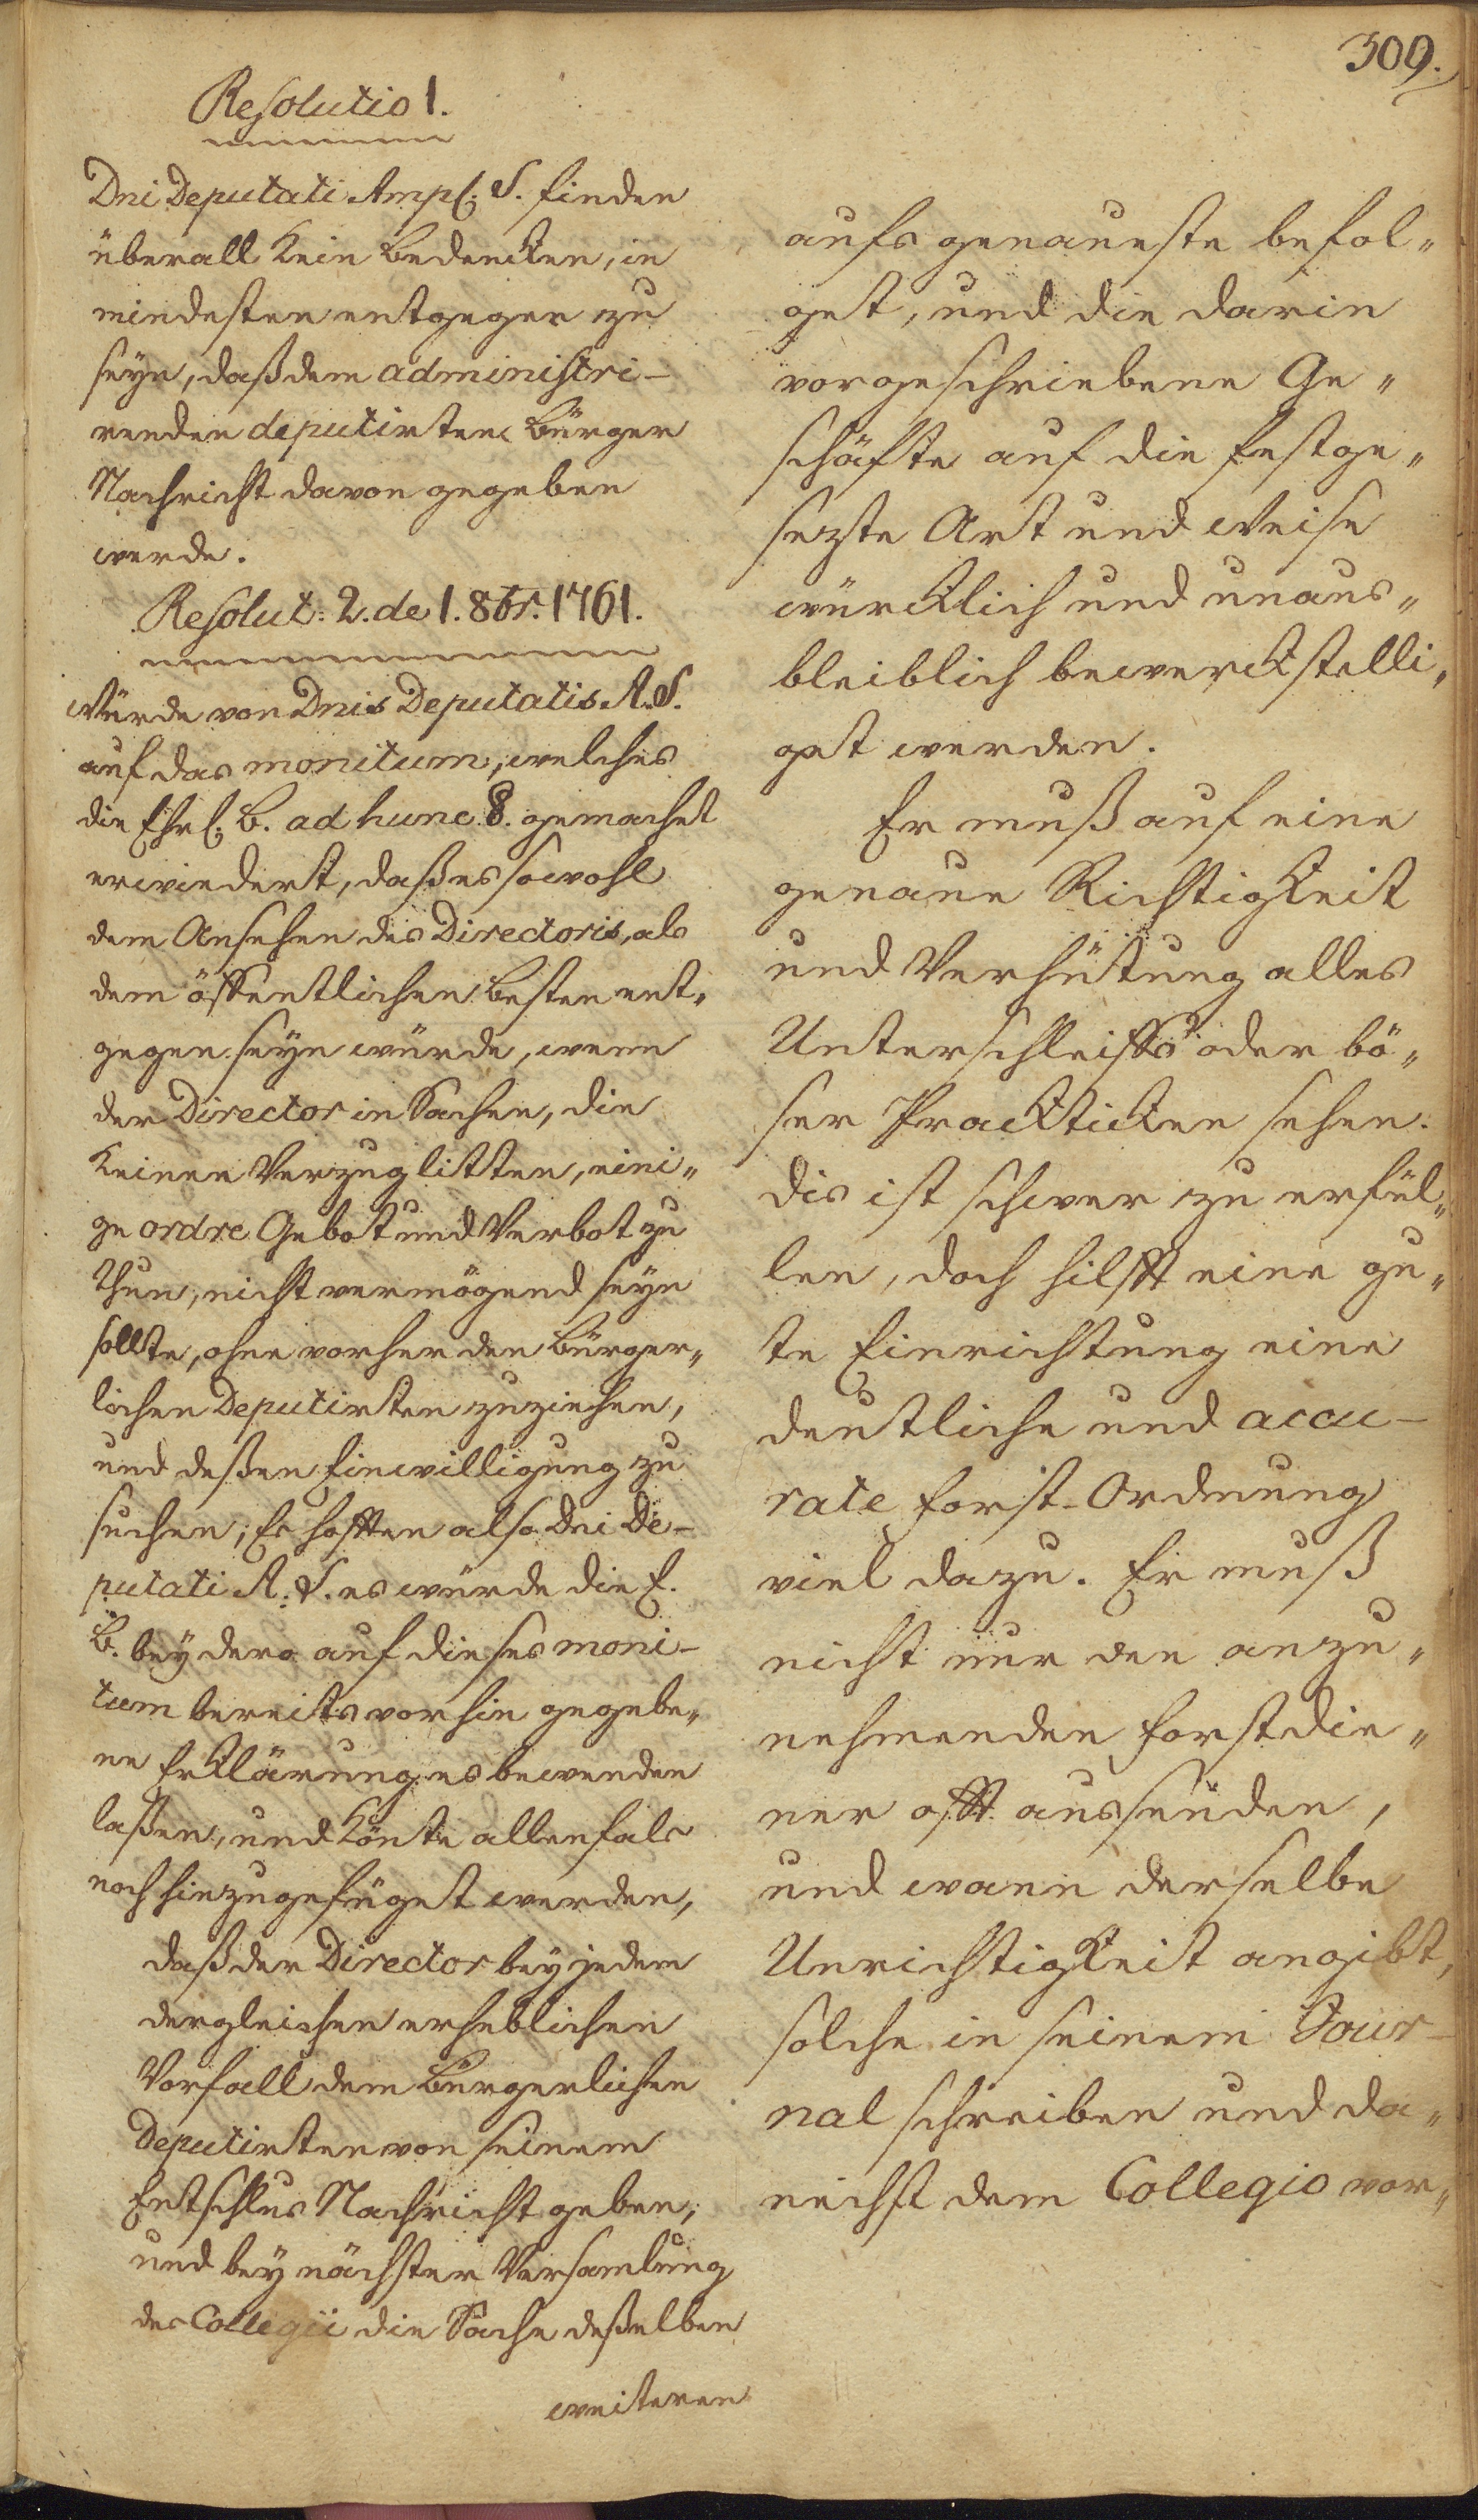 309.
Resolutio 1.
Dni Deputati Ampl. S. finden
überall kein Bedencken, in
mindesten entgegen zu
seyn, daß dem administri-
renden deputirten Bürger
Nachricht davon gegeben
werde.
Resolut: 2. de 1. 8br. 1761.
Würde von Dnis Deputatis A. S.
auf das monitum, welches
die Ehrl. B. ad hunc §. gemachet
erwiedert, daß es sowohl
dem Ansehen des Directoris, als
dem öffentlichen Besten ent„
gegen seyn würde, wenn
der Director in Sachen, die
keinen Verzug litten, eini„
ge ordre Gebot und Verbot zu
thun, nicht vermögend seyn
sollte, ohne vorher den Bürger„
lichen Deputirten zuziehen,
und deßen Einwilligung zu
suchen; Es hofften also Dni De-
putati A. S. es würde die E.
B. bey dero auf dieses moni-
tum bereits vorhin gegebe„
ne Erklärung es bewenden
laßen, und könte allenfals
noch hinzugefüget werden,
daß der Director bey jedem
dergleichen erheblichen
Vorfall dem Bürgerlichen
Deputirten von seinem
Entschlus Nachricht geben,
und bey nächster Versamlung
des Collegii die Sache deßelben
weiteren
aufs genaueste befol„
get, und die darin
vorgeschriebene Ge„
schäfte auf die festge„
sezte Art und Weise
würcklich und unaus„
bleiblich bewerckstelli„
get werden.
Er muß auf eine
genaue Richtigkeit
und Verhütung alles
Unterschleiffs oder bö„
ser Practicken sehen.
dis ist schwer zu erfül„
len, doch hilfft eine gu„
te Einrichtung eine
deutliche und accu-
rate Forst-Ordnung
viel dazu. Er muß
nicht nur den anzu„
nehmenden Forstdie„
ner offt aussenden,
und wann derselbe
Unrichtigkeit angibt,
solche in seinem Jour-
nal schreiben und da„
nechst dem Collegio vor„